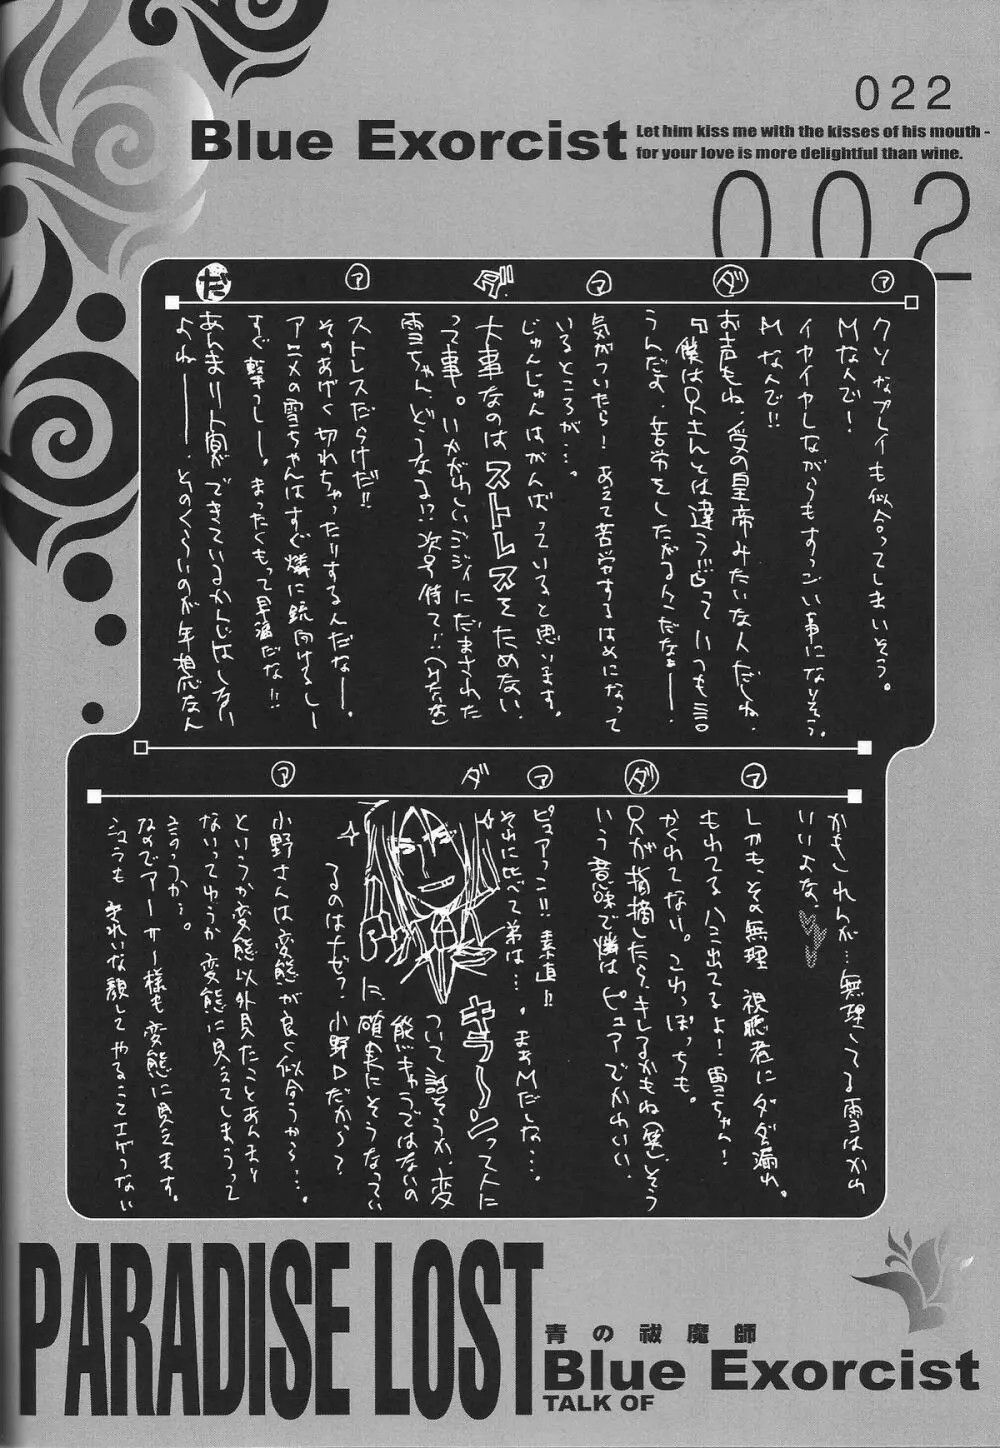 022
Blue Exorcist
Let him kiss me with the kisses of his mouth -
for your love is more delightful than wine.
002
ア
クソなプレイも似合ってしまいそう。
Mなんで!
イヤイヤしながらもすっごい事になりそう。
Mなんで!!
ダ
お声もね、受の皇帝みたいな人だしね、
『僕は兄さんとは違う!!』っていつも言
うんだよ、苦労をしたがる人だなぁー。
マ
気がついたら!あえて苦労するはめになって
いるところが…。
じゅんじゅんはがんばっていると思います。
ダ
大事なのはストレスをためない、
って事。いかがわしいジジィにだまされた
雪ちゃん、どうなる!?次号待て!!
ア
ストレスだらけだ!!
そのあげく切れちゃったりするんだなー。
アニメの雪ちゃんはすぐ燐に銃向けるしー
すぐ撃つしー。まったくもって早漏だな!!
だ
あんまり下寧ができているかんじはしない
よねー。そのくらいのが年相応なん
かもしれんが…無理してる雪はかわ
いいよな、
マ
しかも、その無理 視聴者にダダ漏れ。
もれてる ハミ出てるよ!雪ちゃん!
かくれてない。これっぽっちも。
ダ
兄が指摘したら、キレるかもね(笑)そう
いう意味で燐はピュアでかわいい
ア
ピュアっ!!素直!!
それに比べて弟は…。まぁMだしな…。
ダ
キラーンって人に
ついて話そうか、変
態キャラではないの
に、確実にそうなってい
るのはなぜ?小野Dだから?
ア
小野さんは変態が良く似合うから…。
というか変態以外見たことあんまり
ないってゆうか変態に見えてしまうって
ゆうか…。
なのでアーサー様も変態に見えます。
きれいな顔してやることエゲつない
PARADISE LOST
青の祓魔師
Blue Exorcist
TALK OF